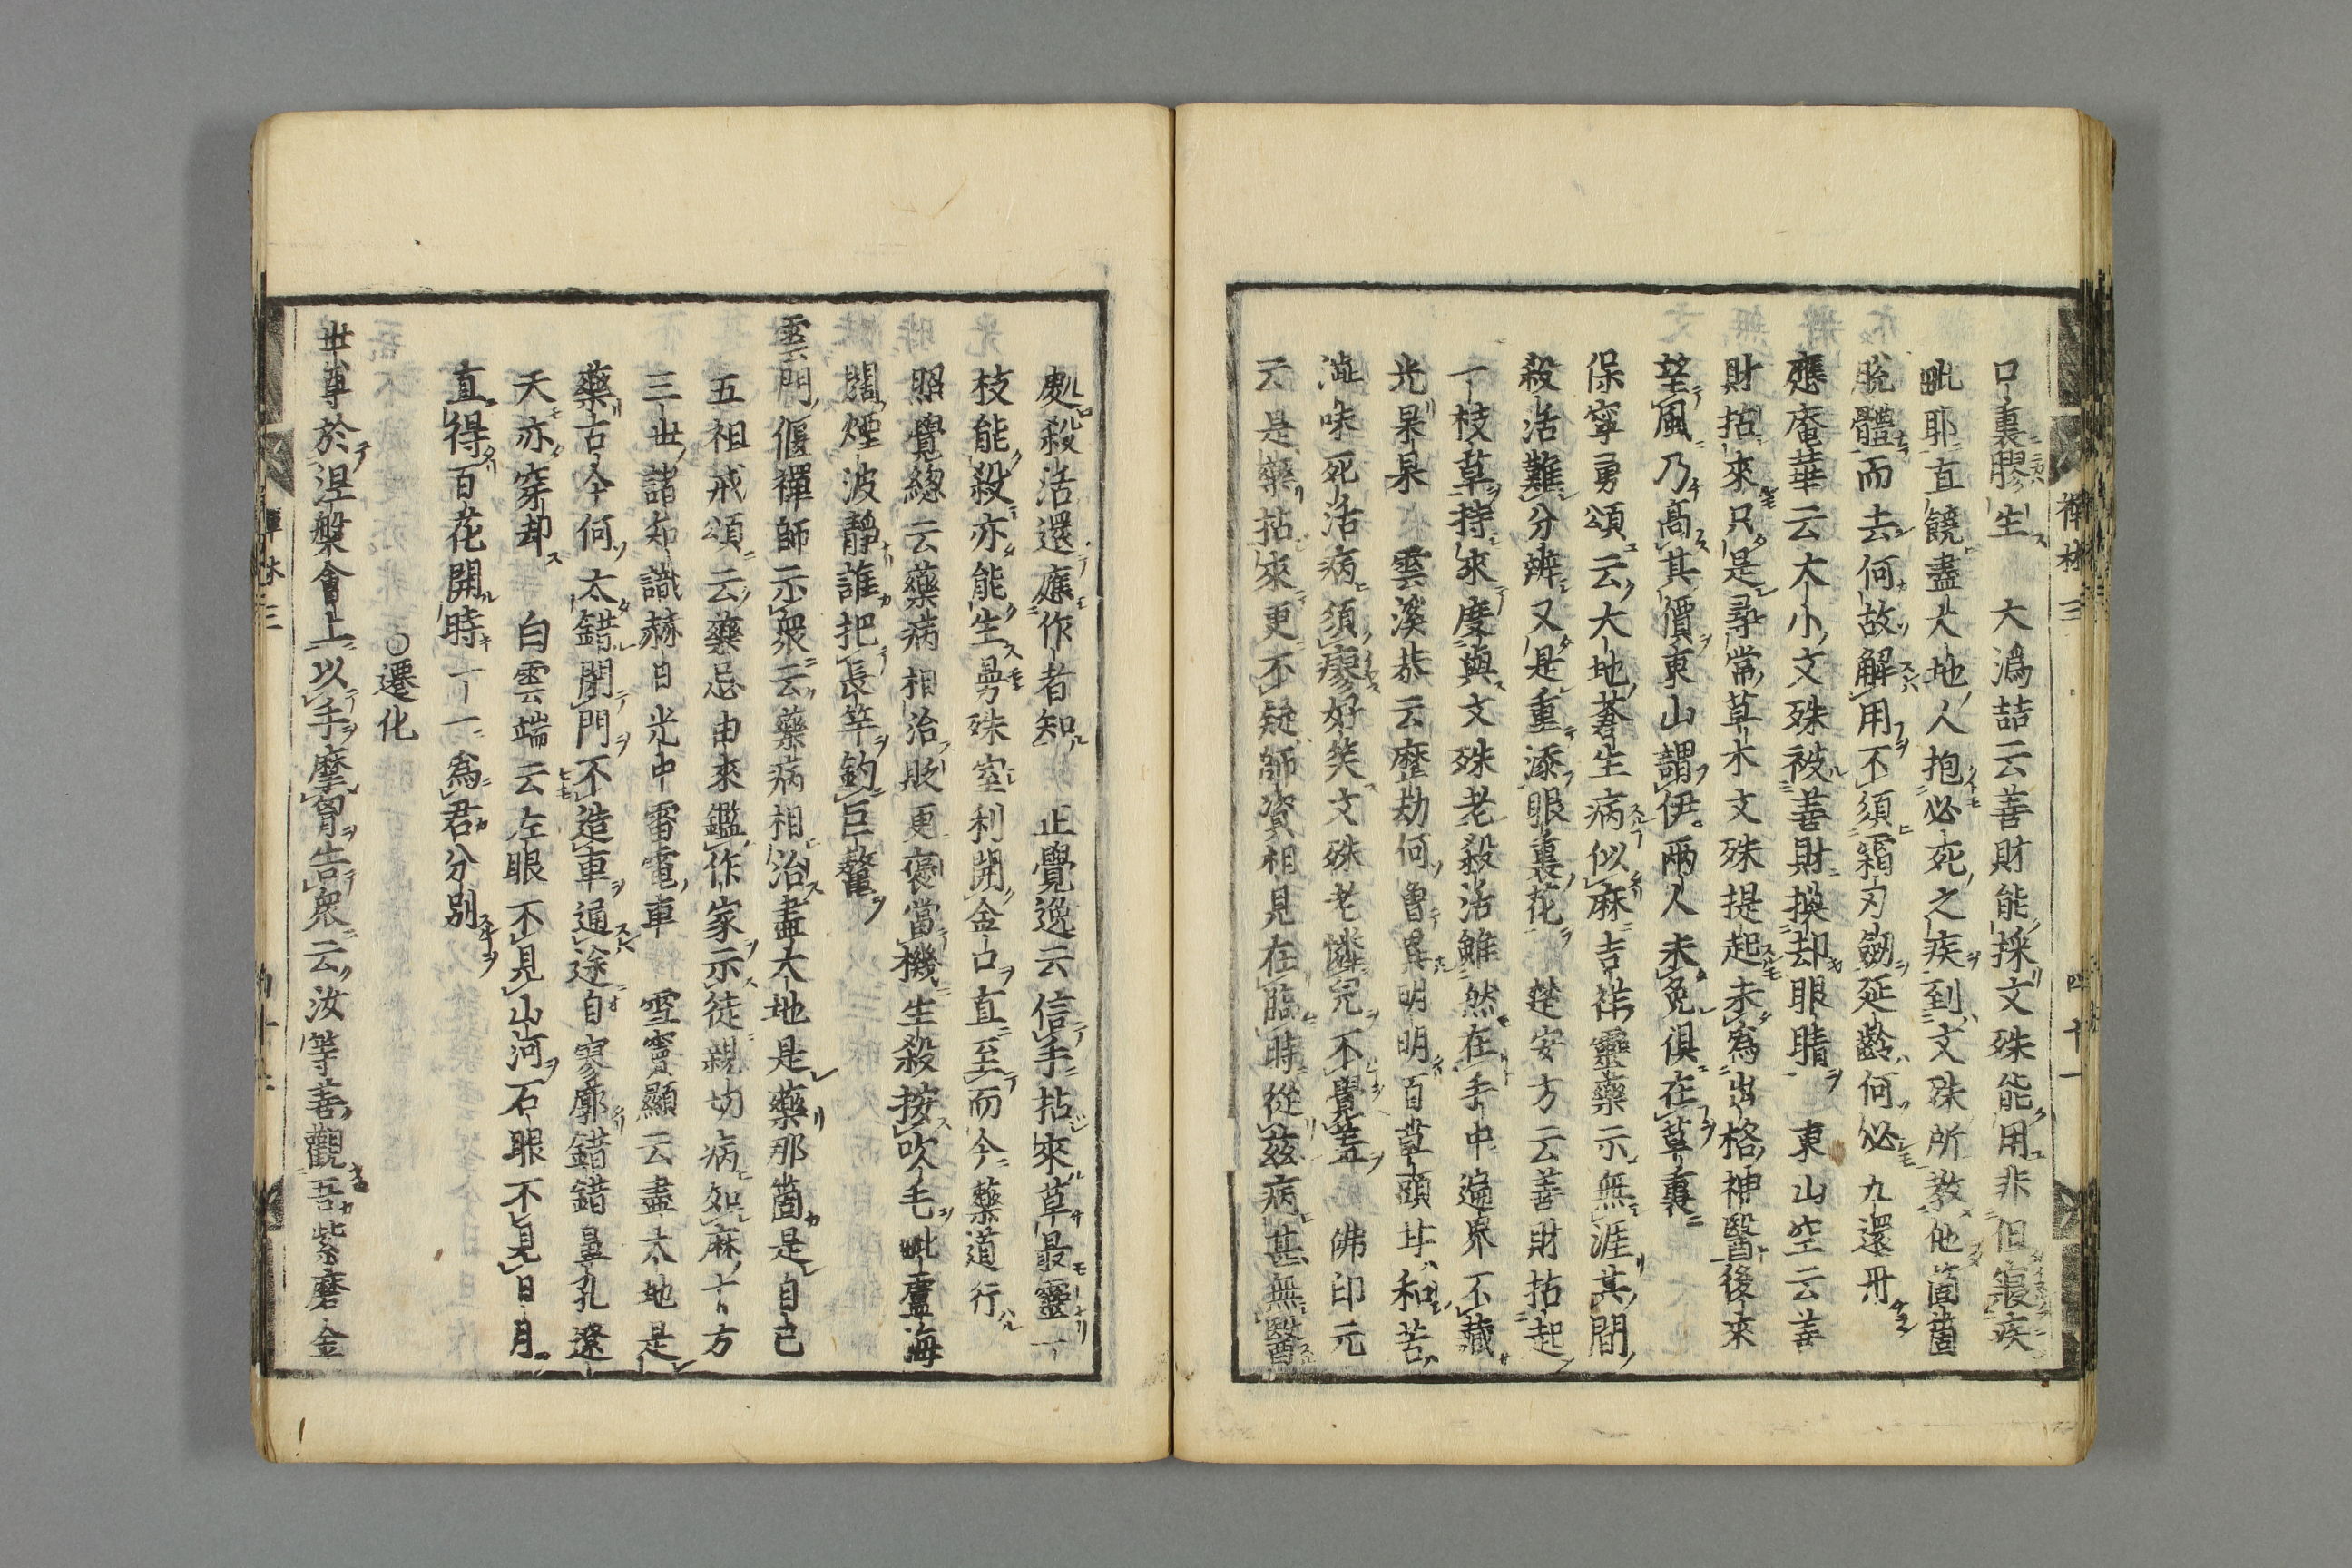 禅林三 四十一
口裏膠生 大溈喆云善財能採文殊能用非但寢疾
毗耶直饒盡大地人抱必死之疾到文殊所教他箇箇
脫體而去何故解用不須霜刃劒延齡何必九還丹
應庵華云大小文殊被善財換却眼睛 東山空云善
財拈來只是尋常草木文殊提起未爲出格神醫後來
望風乃高其價東山謂伊兩人未免俱在草裏
保寧勇頌云大地蒼生病似麻吉祥靈藥示無涯其間
殺活難分辨又是重添眼裏花 楚安方云善財拈起
一枝草持來度與文殊老殺活雖然在手中遍界不藏
光杲杲 雲溪恭云塵劫何曾異明明百草頭甘和苦
澁味死活病須瘳好笑文殊老憐兒不覺羞 佛印元
云是藥拈來更不疑師資相見在臨時從茲病甚無醫
處殺活還應作者知 正覺逸云信手拈來草最靈一
枝能殺亦能生曼殊室利開金口直至而今藥道行
照覺總云藥病相治貶更褒當機生殺按吹毛毗盧海
闊煙波靜誰把長竿釣巨鼇
雲門偃禪師示衆云藥病相治盡大地是藥那箇是自己
五祖戒頌云藥忌由來鑑作家示徒親切病如麻十方
三世諸知識赫日光中雷電車 雪竇顯云盡大地是
藥古今何太錯閉門不造車通途自寥廓錯錯鼻孔遼
天亦穿却 白雲端云左眼不見山河右眼不見日月
直得百花開時一一爲君分別
○遷化
世尊於涅槃會上以手摩胷告衆云汝等善觀吾紫磨金